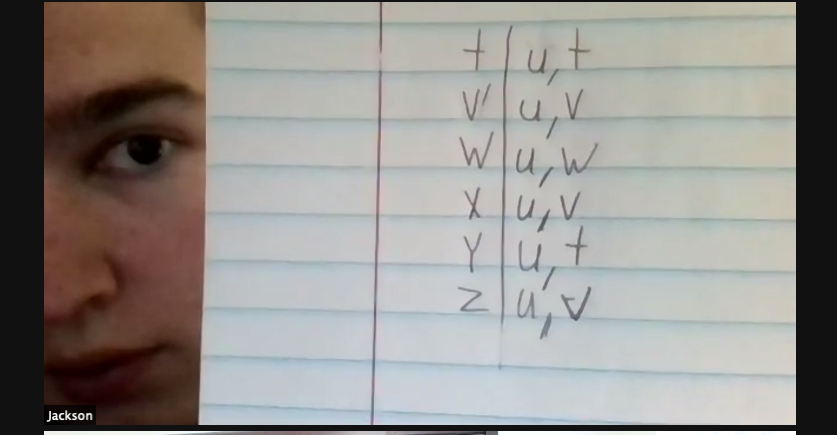 t | u, t
v' | u, v
w | u, w
x | u, v
y | u, t
z | u, v
Jackson